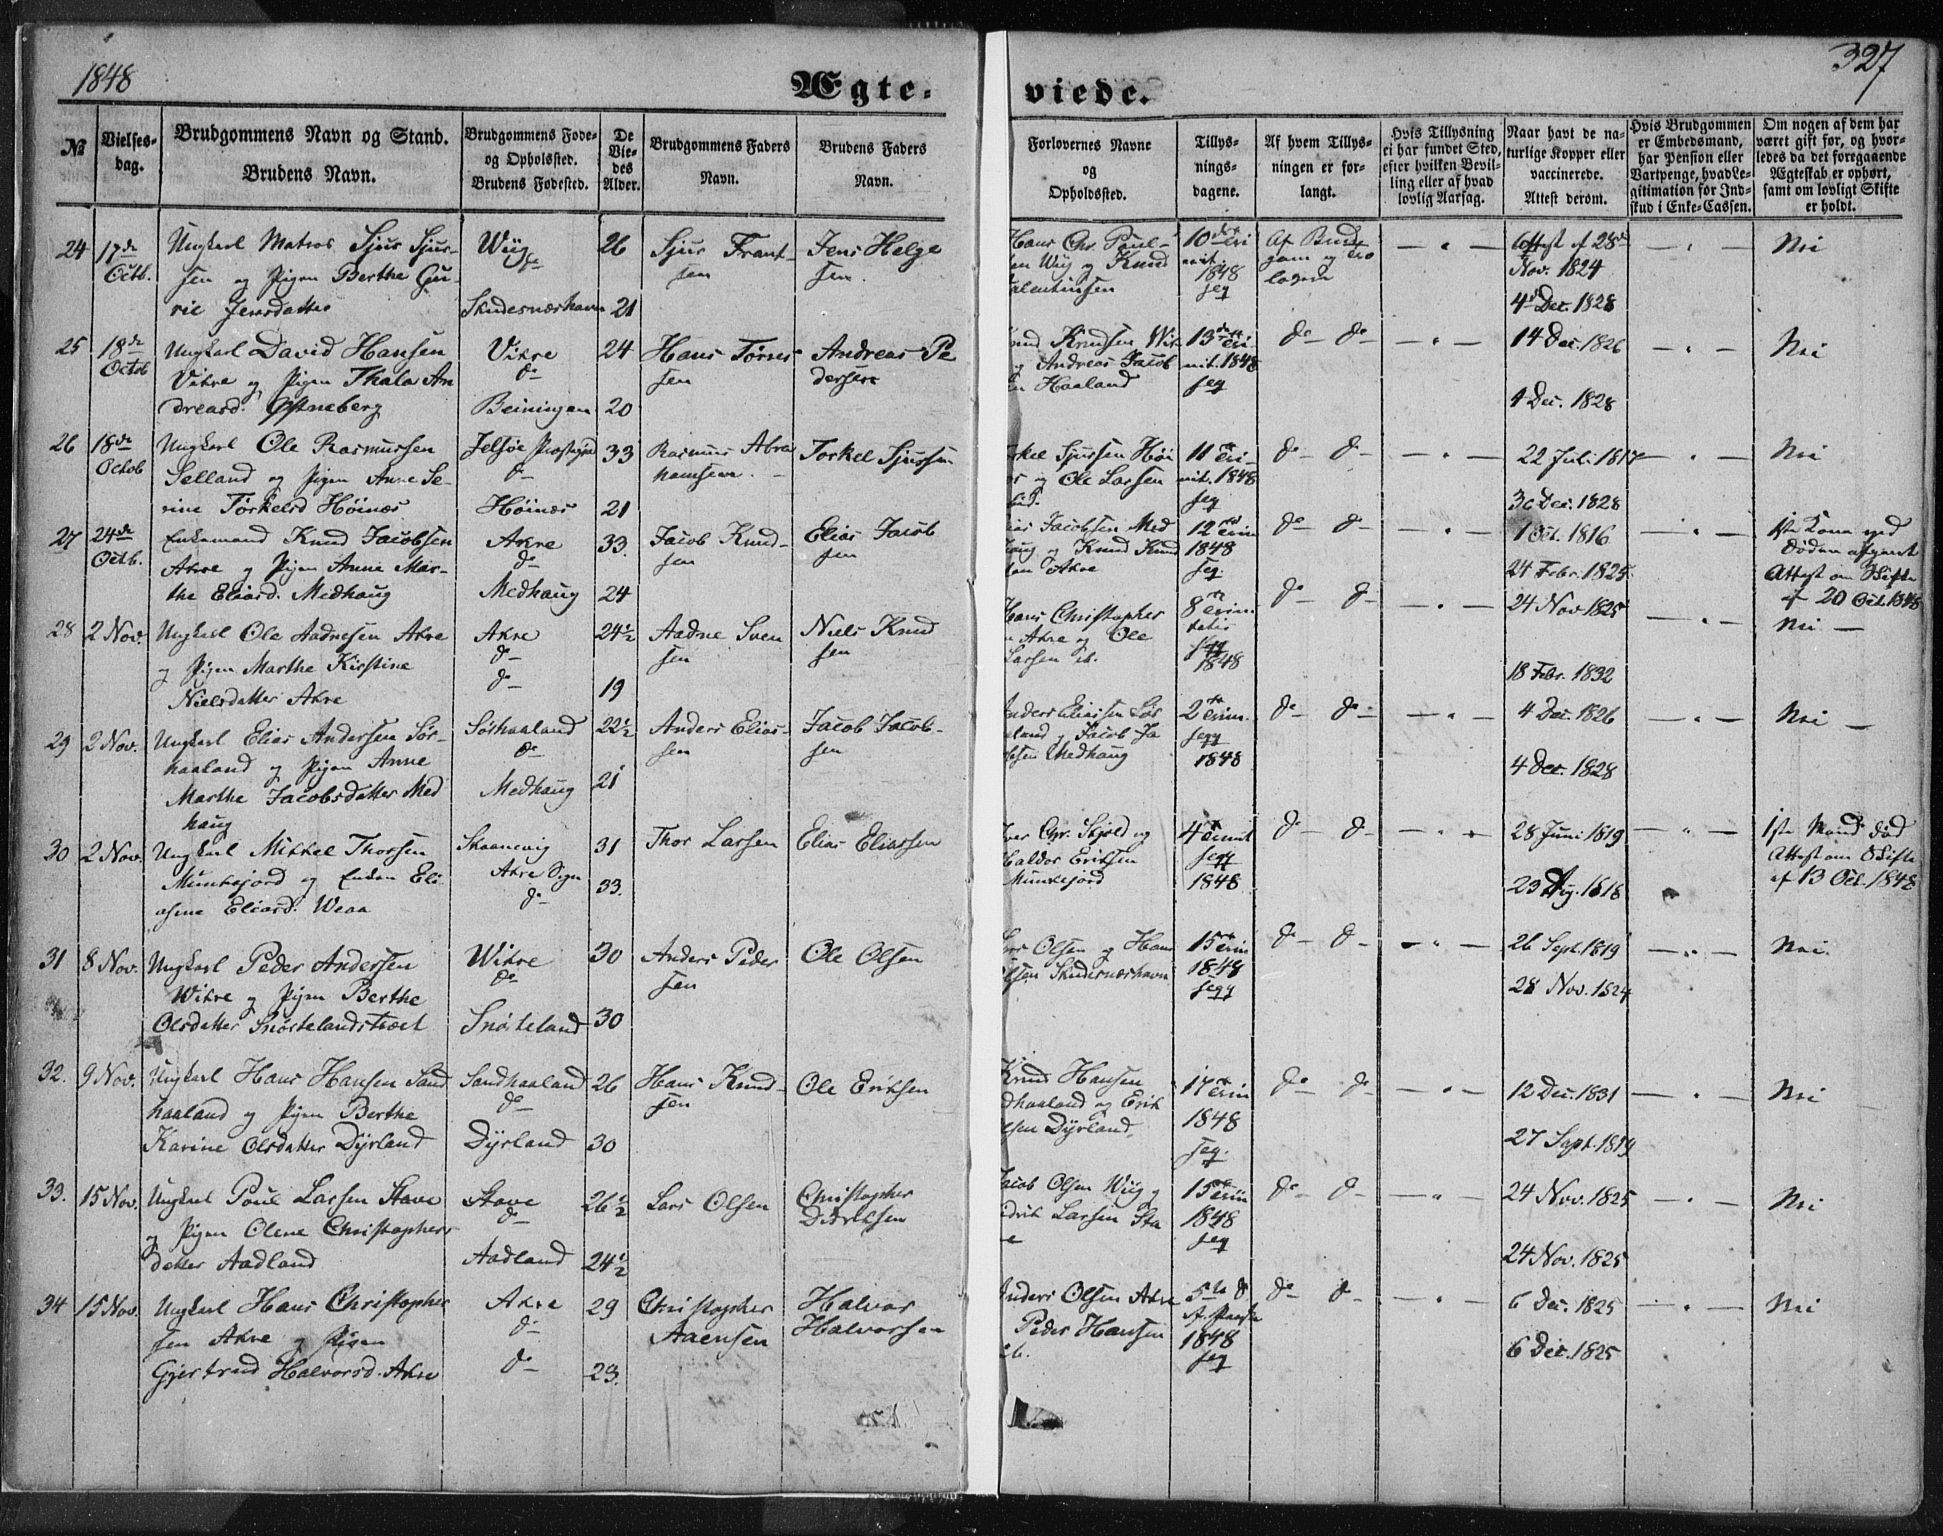 1848
Ægte-
viede.
327
№
Vielses-
dag.
Brudgommens Navn og Stand.
Brudens Navn.
Brudgommens Føde-
og Opholssted.
Brudens Fødested.
De
Vie-
des
Alder.
Brudgommens Faders
Navn.
Brudens Faders
Navn.
Forlovernes Navne
og
Opholdssted.
Tillys-
nings-
dagene.
Af hvem Tillys-
ningen er for-
langt.
Hvis Tillysning
ei har fundet Sted,
efter hvilken Bevil-
ling eller af hvad
lovlig Aarsag.
Naar havt de na-
turlige Kopper eller
vaccinerede.
Attest derom.
Hvis Brudgommen
er Embedsmand,
har Pension eller
Vartpenge, hvad Le-
gitimation for Ind-
skud i Enke-Cassen.
Om nogen af dem har
været gift før, og hvor-
ledes da det foregaaende
Ægteskab er ophørt,
samt om lovligt Skifte
er holdt.
24 17de Octb.
Ungkarl Matros Sjur Sjur-
sen og Pigen Berthe Gu-
rie Jensdatter
Wiig
do
Skudesnæshavn
26
21
Sjur Frant-
sen
Jens Helge
sen
Hans Chr. Poul-
sen Wiig og Knud
Valentinsen
10de
1848
Af Brud
gom og
Attest af 28de
Nov. 1824
4de Dec. 1828
Nei
25 18de Octob
Ungkarl David Hansen
Vikre og Pigen Thala An
dreasd. Østneberg
Vikre
do
Beiningen
24
20
Hans Tørres
sen
Andreas Pe
dersen
Knudsen Vik
og Andreas Jacob
sen Haaland
13de
1848
do do
14 Dec. 1826
4 Dec. 1828
Nei
26 18de Octob
Ungkarl Ole Rasmussen
Selland og Pigen Anne Se-
rine Torkelsd Høinæs
Jelsøe Præstegd
do
Høinæs
33
21
Rasmus Abra
hamsen
Torkel Sjursen
Torkel Sjursen Høi
og Ole Larsen
11
1848
do do
22 Juli 1817
30 Dec. 1828
Nei
27 24de Octb.
Enkemand Knud Jacobsen
Akre og Pigen Anne Mar-
the Eliasd. Medhaug
Akre
do
Medhaug
33.
24
Jacob Knud-
sen
Elias Jacob
sen
Elias Jacobsen Med
haug og Knud Knud
sen Akre
12
1848
do do
1 Oct. 1816
24 Febr. 1825
1ste Kone ved
Døden afgaaet
Attest om Skifte
af 20 Oct. 1848
28 2 Nov.
Ungkarl Ole Aadnesen Akre
og Pigen Marthe Kirstine
Nielsdatter Akre
Akre
do
do
24½
19
Aadne Sven
sen
Niels Knud
sen
Hans Christopher
sen Akre og Ole
Larsen ib.
8
1848
do do
24 Nov 1825
18 Febr. 1832
Nei
29 2 Nov.
Ungkarl Elias Andersen Sør-
haaland og Pigen Anne
Marthe Jacobsdatter Med
haug
Sørhaaland
do
Medhaug
22½
21
Anders Elias-
sen
Jacob Jacob-
sen
Anders Eliassen Sør
haaland og Jacob Ja
cobsen Medhaug
2
1848
do do
4 Dec. 1826
4 Dec. 1828
Nei
30 2 Nov.
Ungkarl Mikkel Thorsen
Munkejord og Enken Eli
asine Eliasd. Weaa
Skaanevig
Akre Sogn
do
31
33.
Thor Larsen
Elias Eliassen
Chr. Skjold og
Haldor Eriksen
Munkejord
4
1848
do do
28 Juni 1819
23 Aug. 1818
1ste Mand død
Attest om Skifte
af 13 Oct. 1848
31 8 Nov.
Ungkarl Peder Andersen
Wikre og Pigen Berthe
Olsdatter Snørtelandstræet
Wikre
do
Snørteland
30
30
Anders Peder
sen
Ole Olsen
Lars Olsen og Hans
Olsen Skudesnæshavn
15
1848
do do
26 Sept. 1819
28 Nov. 1824
Nei.
32. 9 Nov.
Ungkarl Hans Hansen Sand
haaland og Pigen Berthe
Karine Olsdatter Dyrland
Sandhaaland
do
Dyrland
26
30
Hans Knud-
sen
Ole Eriksen
Knud Hansen
Sandhaaland og Erik
Olsen Dyrland,
17
1848
do do
12 Dec. 1831
27 Sept. 1819
Nei
33. 15 Nov.
Ungkarl Poul Larsen Stave
og Pigen Olene Christophers
datter Aadland
Stave
do
Aadland
26½
24½
Lars Olsen
Christopher
Didriksen
Jacob Olsen Wiig og
Didrik Larsen Sta
ve
15
1848
do do
24 Nov. 1825
24 Nov. 1825
Nei
34 15 Nov.
Ungkarl Hans Christopher
sen Akre og Pigen
Gjertrud Halvorsd. Akre
Akre
do
do
29
23.
Christopher
Aaensen
Halvor
Halvorsen
Anders Olsen Akre
Peder Hansen
ib.
5te
1848
do do
6 Dec. 1825
6 Dec. 1825
Nei